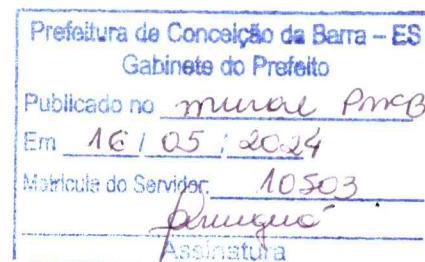 Prefeitura de Conceição da Barra – ES
Gabinete do Prefeito
Publicado no mural PMCB
Em 16 / 05 / 2024
Matrícula do Servidor: 10503
Assinatura